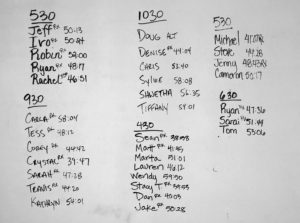 530
Jeff RX 50:13
Ivo RX 50:24
Robin RX 52:00
Ryan RX 48:17
Rachel RX 46:51
930
Carla RX 58:04
Tess RX 48:12
Corey RX 44:42
Crystal RX 39:47
Sarah RX 47:28
Travis RX 44:20
Kathryn 56:01
1030
Doug ALT
Denise RX 44:04
Chris 52:40
Sylvie 58:08
Shwetha 56:35
Tiffany 54:01
430
Sean RX 38:58
Matt RX 41:45
Marta 51:01
Lauren 46:12
Wendy 59:50
Stacy T RX 59:03
Dan RX 40:03
Jake RX 50:28
530
Michael
Steve 44:28
Jenny
Cameron 50:17
630
Ryan 47:36
Sarai 51:44
Tom 53:06